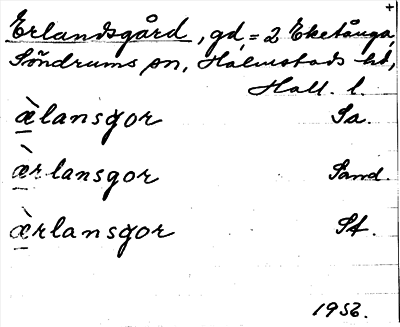 +
Erlandsgård, gd = 2 Eketånga,
Söndrums sn, Halmstads hd,
Hall. l.
æ̀lansgor Sa.
æ̀rlansgor Sand.
æ̀rlansgor St.
1956.